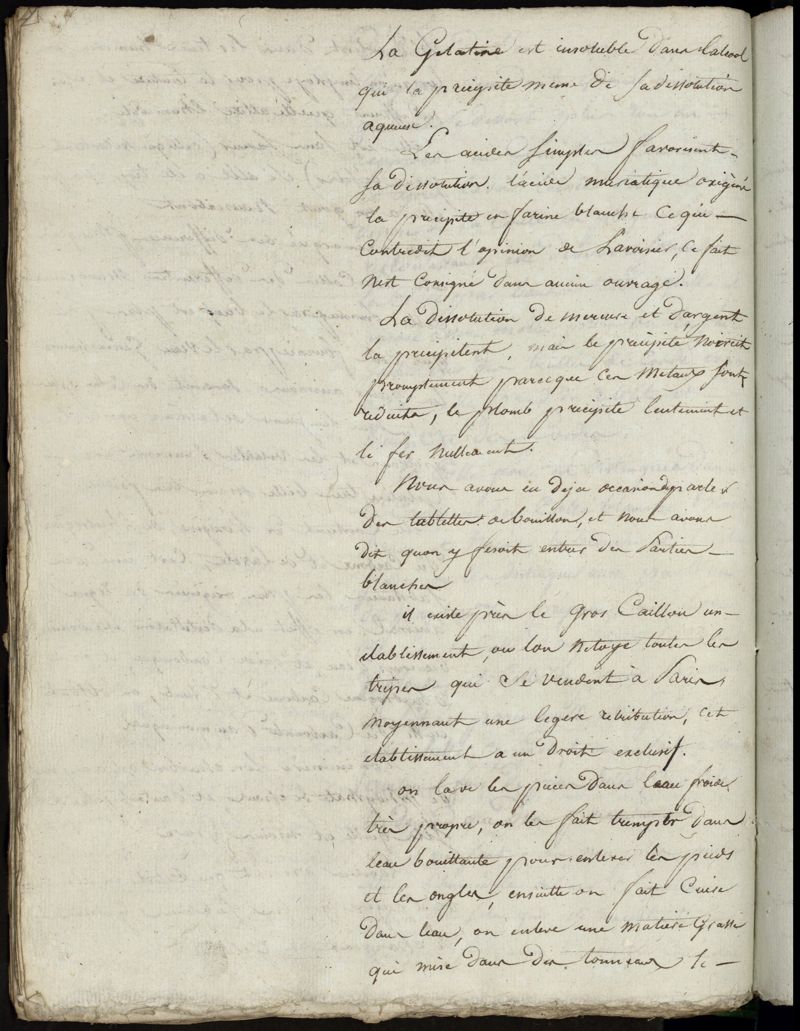 La Gelatine est insoluble dans l'alcool
qui la précipite meme de sa dissolution
aqueuse.
Les acides simples favorisent
sa dissolution. l'acide muriatique oxigéné
la precipite en farine blanche ce qui —
contredit l'opinion de Lavoisier, ce fait
n'est consigné dans aucun ouvrage.
La dissolution de mercure et d'argent
la precipitent, mais le précipité noircit
promptement parceque ces métaux sont
reduits, le plomb precipite lentement et
le fer nullement.
Nous avons eu deja occasion de parler
des tablettes de bouillon, et nous avons
dit quon y fesoit entrer des Parties —
blanches
il existe près le Gros Caillou un —
etablissement, ou lon netoye toutes les
tripes qui se vendent à Paris,
moyennant une legere retribution, cet
etablissement a un Droit exclusif.
on lave les pieces dans leau froide
très propre, on les fait tremper dans
leau bouillante pour enlever les pieds
et les ongles, ensuitte on fait Cuire
dans leau, on enleve une matiere Grasse
qui mise dans des tonneaux se —